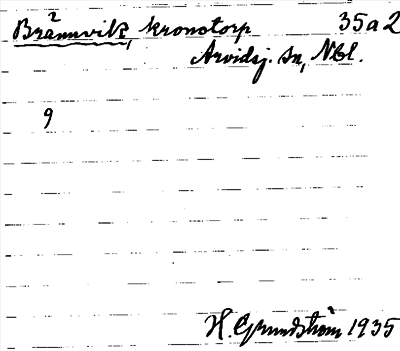 Brännvik, kronotorp 35a2
Arvidsj. sn, Nbl.
9
H. Grundström 1935